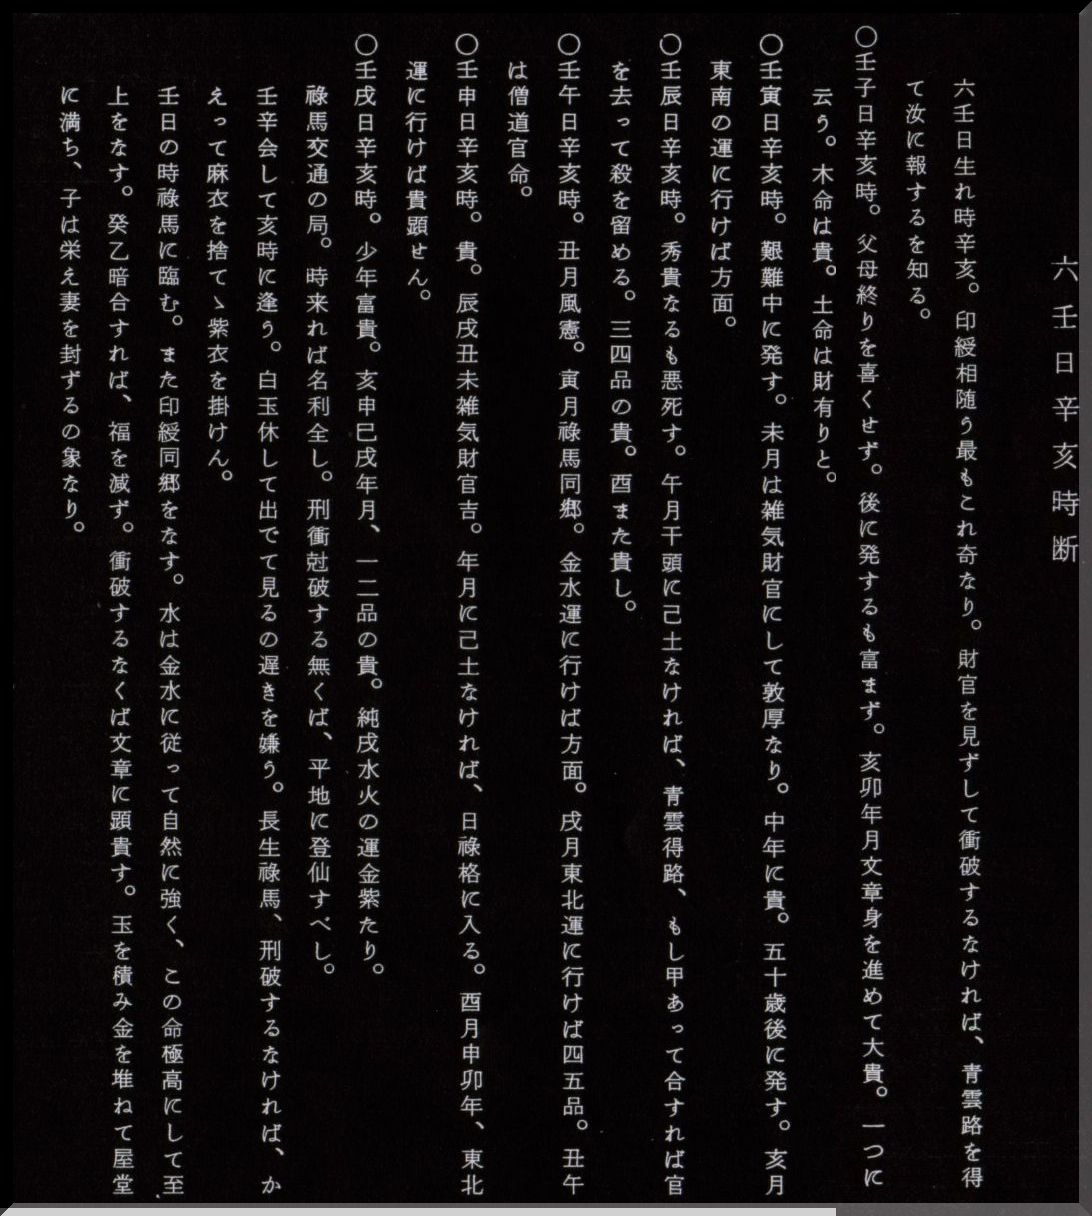 六壬日辛亥時断
六壬日生れ時辛亥。印綬相随う最もこれ奇なり。財官を見ずして衝破するなければ、青雲路を得
て汝に報するを知る。
〇壬子日辛亥時。父母終りを喜くせず。後に発するも富まず。亥卯年月文章身を進めて大貴。一つに
云う。木命は貴。土命は財有りと。
〇壬寅日辛亥時。艱難中に発す。未月は雑気財官にして敦厚なり。中年に貴。五十歳後に発す。亥月
東南の運に行けば方面。
〇壬辰日辛亥時。秀貴なるも悪死す。午月干頭に己土なければ、青雲得路、もし甲あって合すれば官
を去って殺を留める。三四品の貴。酉また貴し。
〇壬午日辛亥時。丑月風憲。寅月祿馬同郷。金水運に行けば方面。戌月東北運に行けば四五品。丑午
は僧道官命。
〇壬申日辛亥時。貴。辰戌丑未雑気財官吉。年月に己土なければ、日祿格に入る。酉月申卯年、東北
運に行けば貴顕せん。
〇壬戌日辛亥時。少年富貴。亥申巳戌年月、一二品の貴。純戌水火の運金紫たり。
祿馬交通の局。時来れば名利全し。刑衝尅破する無くば、平地に登仙すべし。
壬辛会して亥時に逢う。白玉休して出でて見るの遅きを嫌う。長生祿馬、刑破するなければ、か
えって麻衣を捨てゝ紫衣を掛けん。
壬日の時祿馬に臨む。また印綬同郷をなす。水は金水に従って自然に強く、この命極高にして至
上をなす。癸乙暗合すれば、福を減ず。衝破するなくば文章に顕貴す。玉を積み金を堆ねて屋堂
に満ち、子は栄え妻を封ずるの象なり。